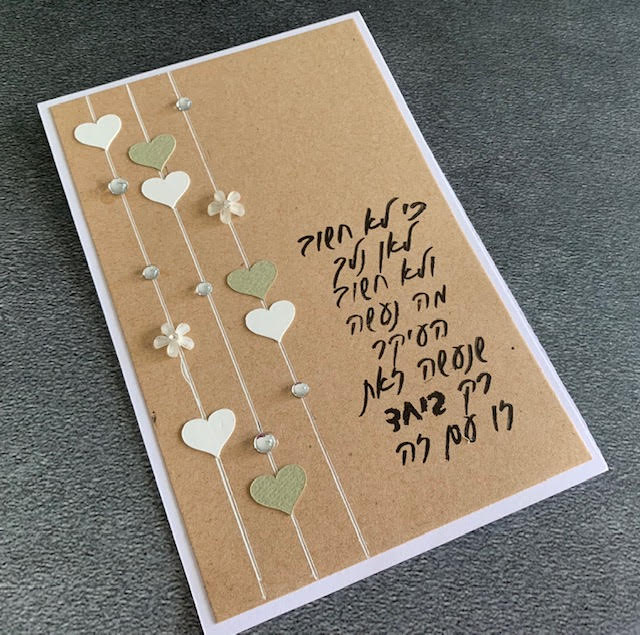 כי לא חשוב
לאן נלך
ולא חשוב
מה נעשה
העיקר
שנעשה זאת
רק ביחד
זו עם זה